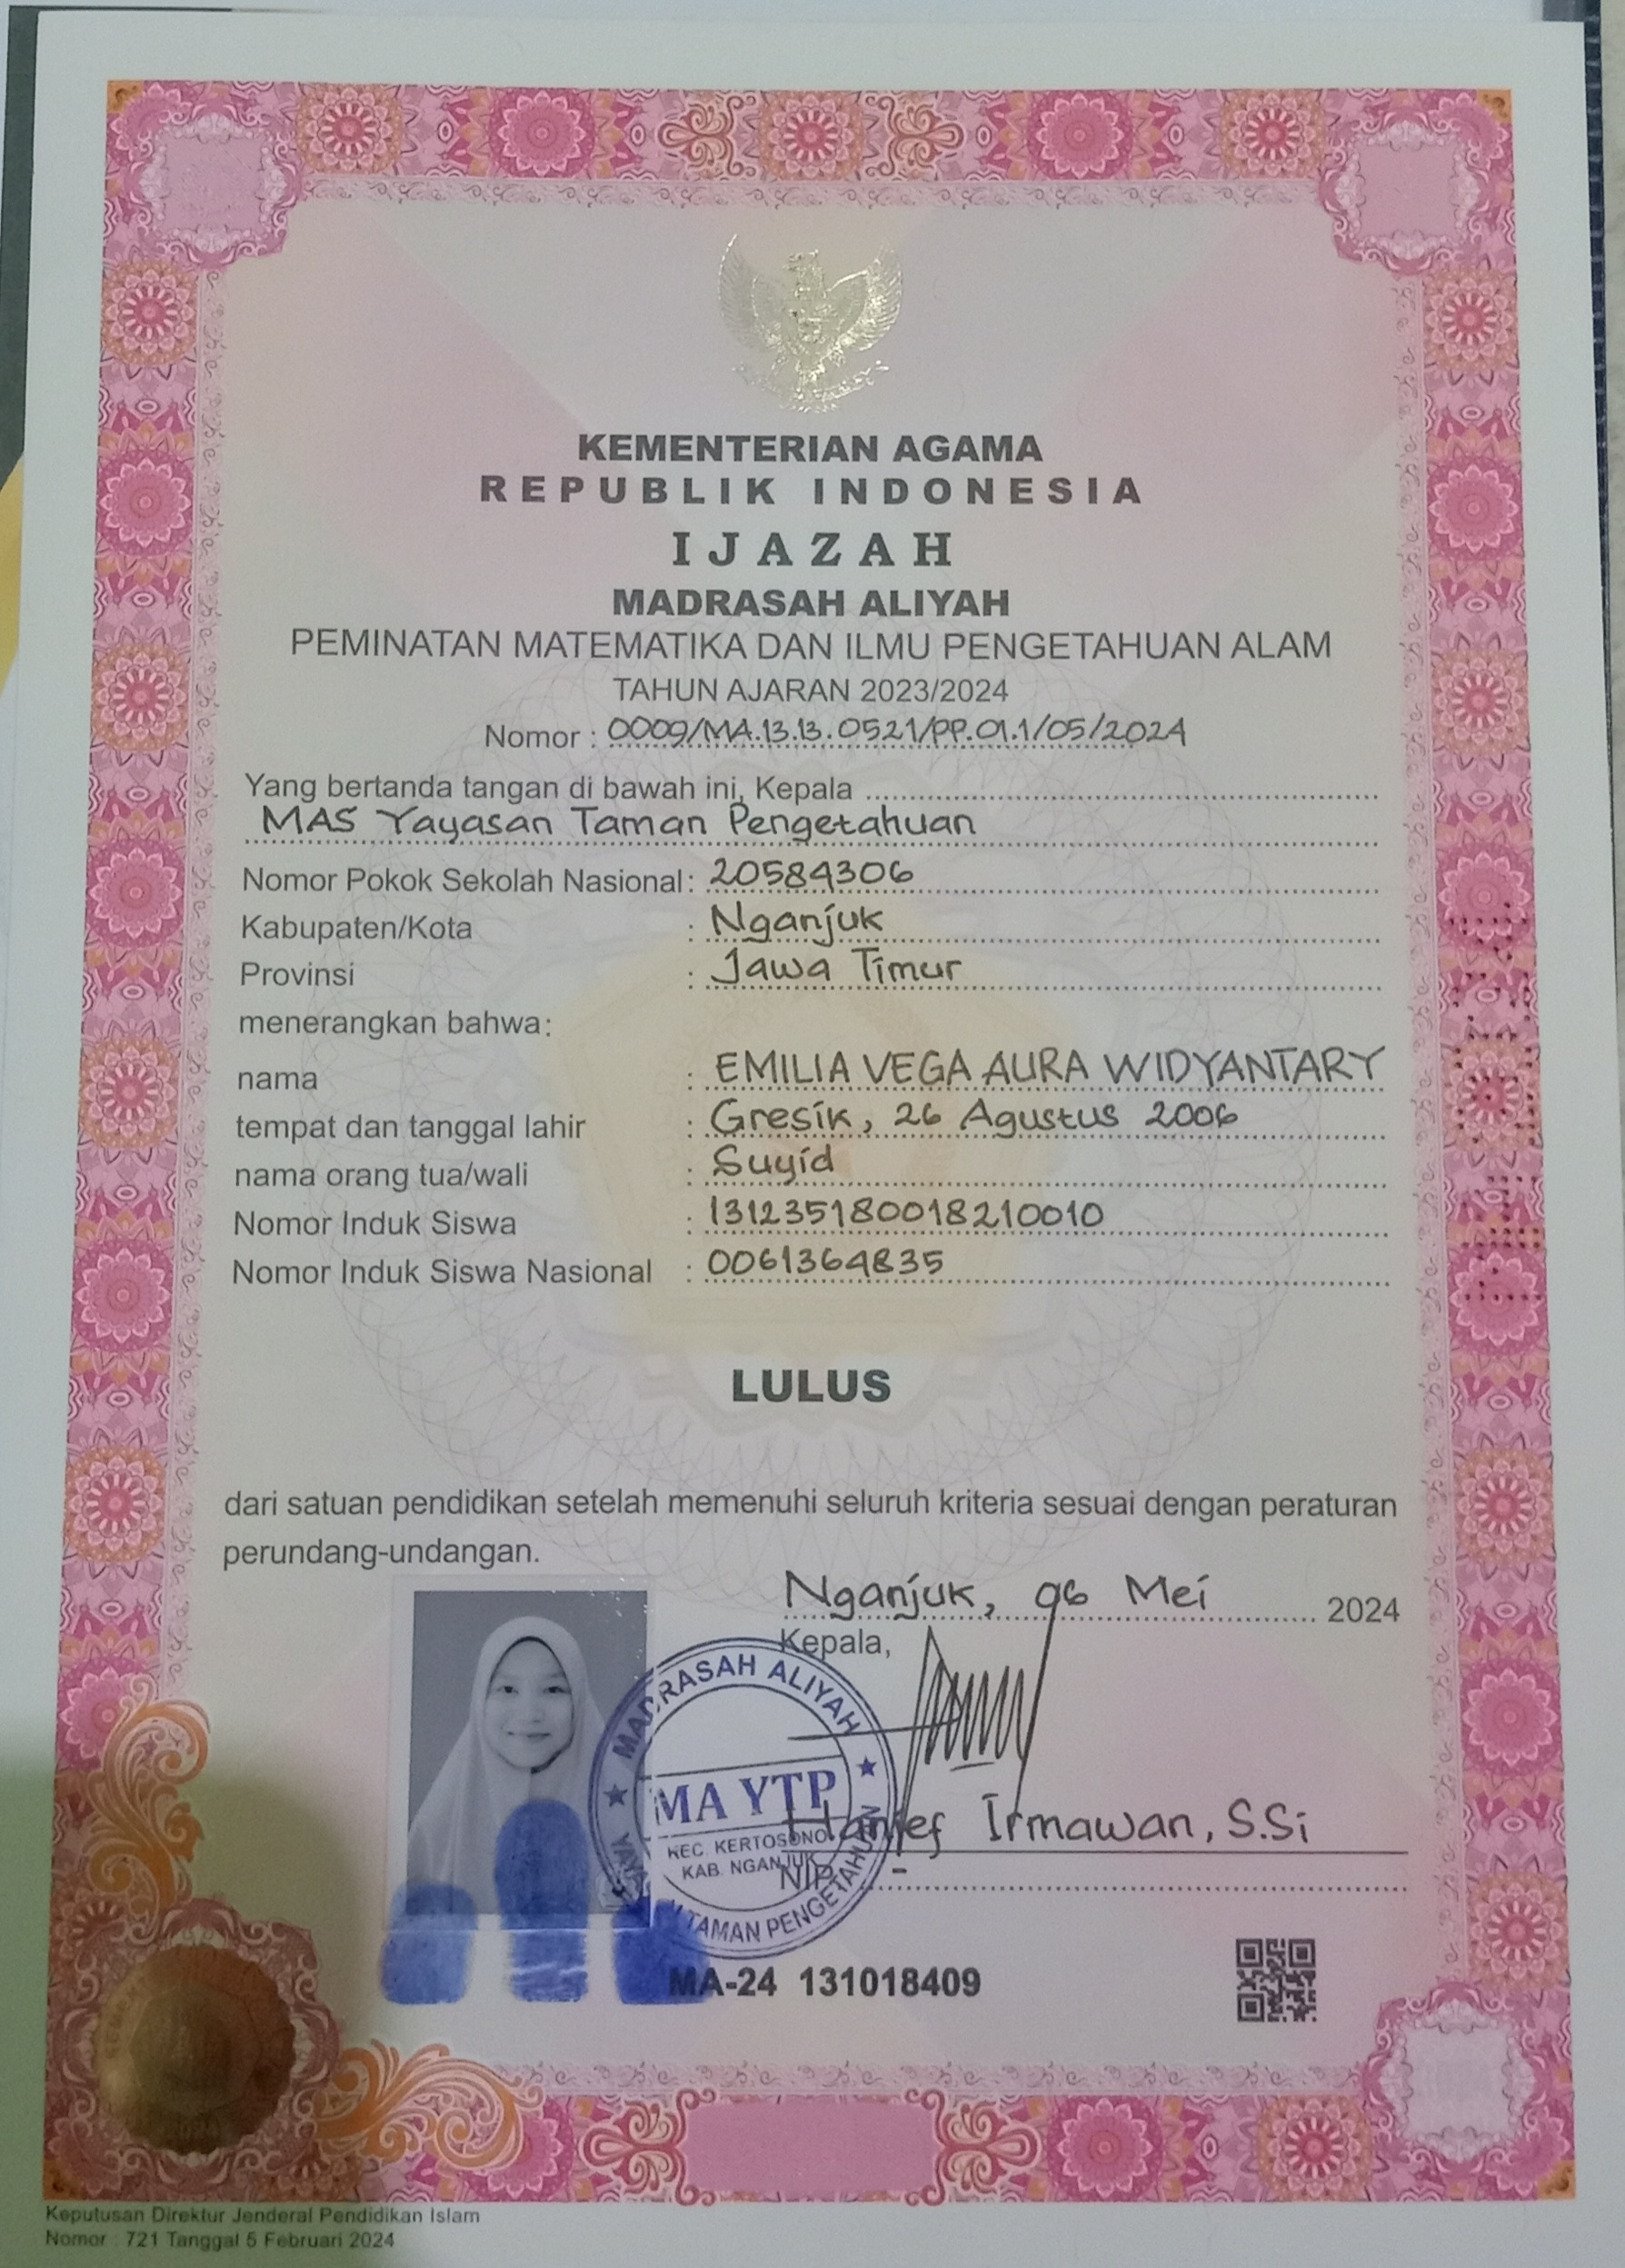 KEMENTERIAN AGAMA
REPUBLIK INDONESIA
IJAZAH
MADRASAH ALIYAH
PEMINATAN MATEMATIKA DAN ILMU PENGETAHUAN ALAM
TAHUN AJARAN 2023/2024
Nomor : 0009/MA.13.13.0521/PP.01.1/05/2024
Yang bertanda tangan di bawah ini, Kepala
MAS Yayasan Taman Pengetahuan
Nomor Pokok Sekolah Nasional : 20584306
Kabupaten/Kota : Nganjuk
Provinsi : Jawa Timur
menerangkan bahwa:
nama : EMILIA VEGA AURA WIDYANTARY
tempat dan tanggal lahir : Gresik, 26 Agustus 2006
nama orang tua/wali : Suyid
Nomor Induk Siswa : 131235180018210010
Nomor Induk Siswa Nasional : 0061364835
LULUS
dari satuan pendidikan setelah memenuhi seluruh kriteria sesuai dengan peraturan
perundang-undangan.
Nganjuk, 06 Mei 2024
Kepala,
MADRASAH ALIYAH
MA YTP
KEC. KERTOSONO
KAB. NGANJUK
TAMAN PENGETAHUAN
Hanief Irmawan, S.Si
NIP. -
MA-24 131018409
Keputusan Direktur Jenderal Pendidikan Islam
Nomor : 721 Tanggal 5 Februari 2024